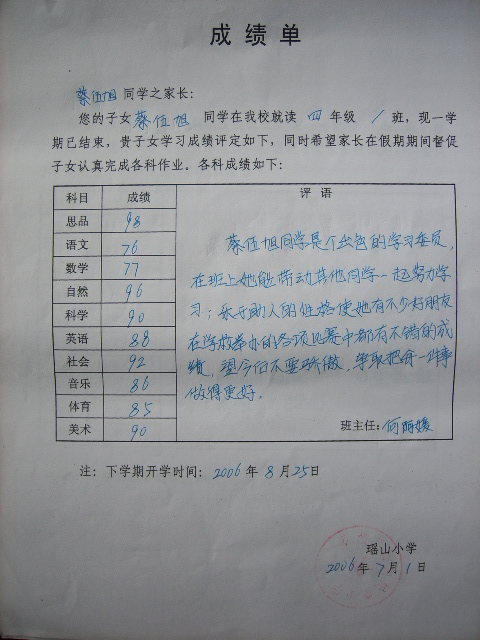 成绩单
蔡伍旭同学之家长：
您的子女蔡伍旭 同学在我校就读 四 年级 1 班，现一学
期已结束，贵子女学习成绩评定如下，同时希望家长在假期期间督促
子女认真完成各科作业。各科成绩如下：
科目 成绩 评语
思品 98
语文 76
数学 77
自然 96
科学 90
英语 88
社会 92
音乐 86
体育 85
美术 90
蔡伍旭同学是个出色的学习委员，
在班上她能带动其他同学一起努力学
习；乐于助人的性格使她有不少好朋友
在学校举办的各项比赛中都有不错的成
绩，望今后不要骄傲，争取把每一件事
做得更好。
班主任：何丽媛
注：下学期开学时间：2006 年 8 月 25 日
瑶山小学
2006 年 7 月 1 日